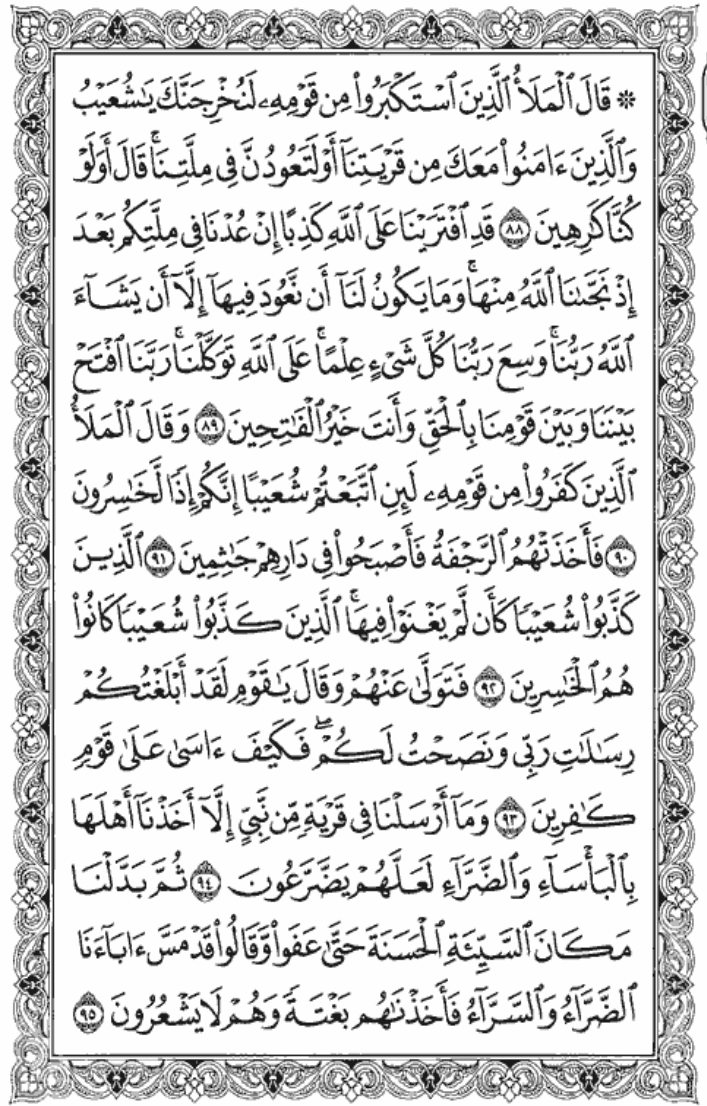 ۞ قَالَ ٱلْمَلَأُ ٱلَّذِينَ ٱسْتَكْبَرُوا۟ مِن قَوْمِهِۦ لَنُخْرِجَنَّكَ يَٰشُعَيْبُ
وَٱلَّذِينَ ءَامَنُوا۟ مَعَكَ مِن قَرْيَتِنَآ أَوْ لَتَعُودُنَّ فِى مِلَّتِنَا ۚ قَالَ أَوَلَوْ
كُنَّا كَٰرِهِينَ ٨٨ قَدِ ٱفْتَرَيْنَا عَلَى ٱللَّهِ كَذِبًا إِنْ عُدْنَا فِى مِلَّتِكُم بَعْدَ
إِذْ نَجَّىٰنَا ٱللَّهُ مِنْهَا ۚ وَمَا يَكُونُ لَنَآ أَن نَّعُودَ فِيهَآ إِلَّآ أَن يَشَآءَ
ٱللَّهُ رَبُّنَا ۚ وَسِعَ رَبُّنَا كُلَّ شَىْءٍ عِلْمًا ۚ عَلَى ٱللَّهِ تَوَكَّلْنَا ۚ رَبَّنَا ٱفْتَحْ
بَيْنَنَا وَبَيْنَ قَوْمِنَا بِٱلْحَقِّ وَأَنتَ خَيْرُ ٱلْفَٰتِحِينَ ٨٩ وَقَالَ ٱلْمَلَأُ
ٱلَّذِينَ كَفَرُوا۟ مِن قَوْمِهِۦ لَئِنِ ٱتَّبَعْتُمْ شُعَيْبًا إِنَّكُمْ إِذًا لَّخَٰسِرُونَ
٩٠ فَأَخَذَتْهُمُ ٱلرَّجْفَةُ فَأَصْبَحُوا۟ فِى دَارِهِمْ جَٰثِمِينَ ٩١ ٱلَّذِينَ
كَذَّبُوا۟ شُعَيْبًا كَأَن لَّمْ يَغْنَوْا۟ فِيهَا ۚ ٱلَّذِينَ كَذَّبُوا۟ شُعَيْبًا كَانُوا۟
هُمُ ٱلْخَٰسِرِينَ ٩٢ فَتَوَلَّىٰ عَنْهُمْ وَقَالَ يَٰقَوْمِ لَقَدْ أَبْلَغْتُكُمْ
رِسَٰلَٰتِ رَبِّى وَنَصَحْتُ لَكُمْ ۖ فَكَيْفَ ءَاسَىٰ عَلَىٰ قَوْمٍ
كَٰفِرِينَ ٩٣ وَمَآ أَرْسَلْنَا فِى قَرْيَةٍ مِّن نَّبِىٍّ إِلَّآ أَخَذْنَآ أَهْلَهَا
بِٱلْبَأْسَآءِ وَٱلضَّرَّآءِ لَعَلَّهُمْ يَضَّرَّعُونَ ٩٤ ثُمَّ بَدَّلْنَا
مَكَانَ ٱلسَّيِّئَةِ ٱلْحَسَنَةَ حَتَّىٰ عَفَوا۟ وَّقَالُوا۟ قَدْ مَسَّ ءَابَآءَنَا
ٱلضَّرَّآءُ وَٱلسَّرَّآءُ فَأَخَذْنَٰهُم بَغْتَةً وَهُمْ لَا يَشْعُرُونَ ٩٥